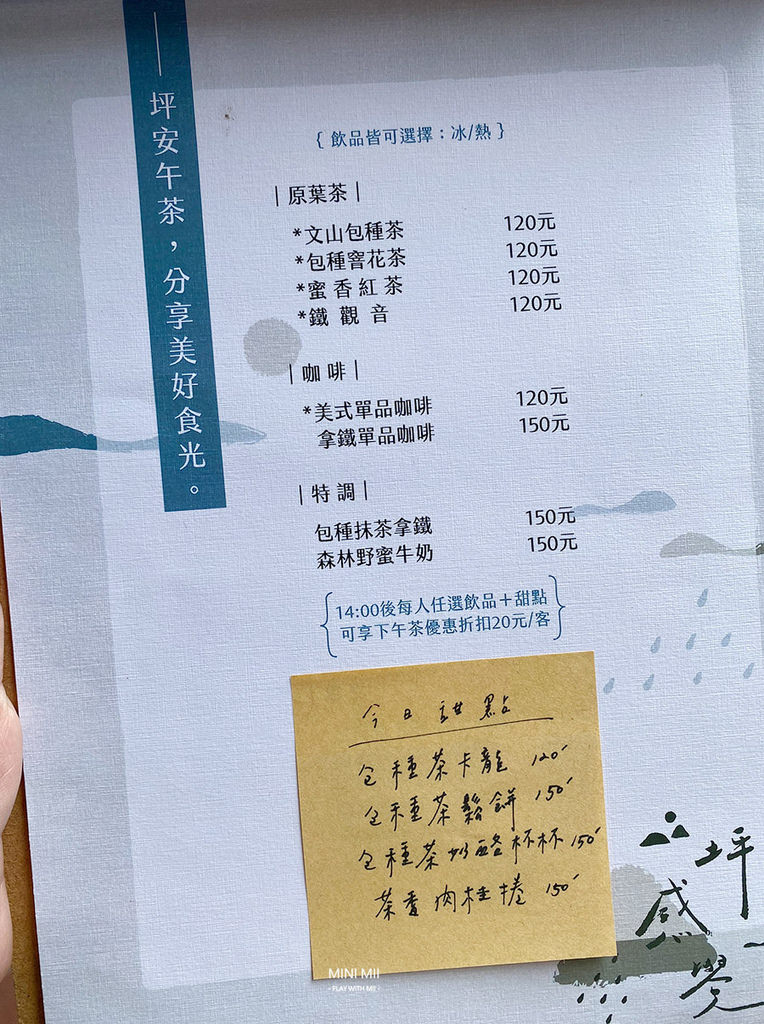 坪安午茶，分享美好食光。
{ 飲品皆可選擇：冰/熱 }
｜原葉茶｜
*文山包種茶 120元
*包種窨花茶 120元
*蜜香紅茶 120元
*鐵觀音 120元
｜咖啡｜
*美式單品咖啡 120元
拿鐵單品咖啡 150元
｜特調｜
包種抹茶拿鐵 150元
森林野蜜牛奶 150元
14:00後每人任選飲品＋甜點
可享下午茶優惠折扣20元/客
今日甜點
包種茶卡龍 120
包種茶鬆餅 150
包種茶奶酪杯杯 150
茶香肉桂捲 150
坪感覺
MINI MII
- PLAY WITH MII -